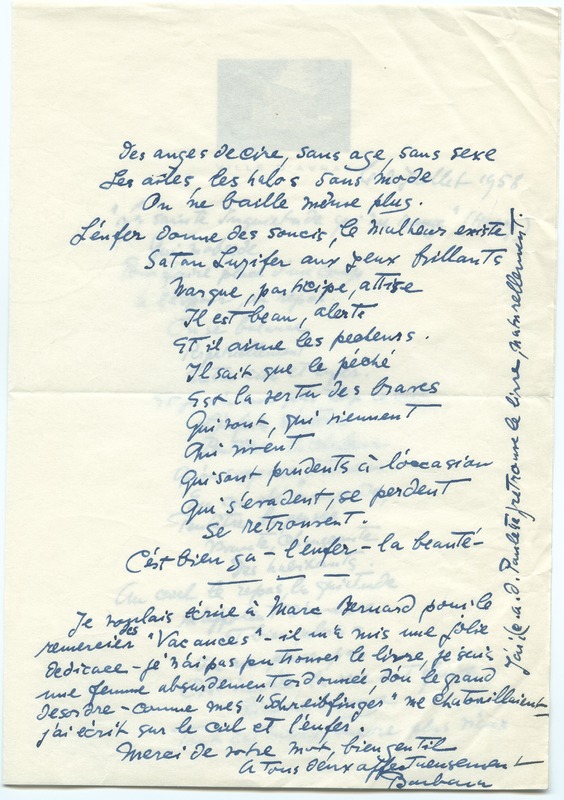 Des anges de cire, sans age, sans sexe
Les ailes les halos sans mode
On ne baille même plus.
L'énfer donne des soucis, le malheur existe
Satan Luzifer aux yeux brillants
Nargue, participe, attise
Il est beau, alerte
Et il aime les pecheurs.
Il sait que le péché
Est la vertu des braves
Qui vont, qui viennent
Qui vivent
Qui sont prudents à l'occasion
Qui s'evadent, se perdent
Se retrouvent.
C'est bien ça - l'énfer - la beauté -
Je voulais écrire à Marc Bernard pour le
remercier des "Vacances" - il m'a mis une jolie
dedicace - je n'ai pas pu trouver le livre, je suis
une femme absurdement ordonnée, d'ou le grand
desordre - comme mes "Schreibfinger" me chatouillaient -
j'ai écrit sur le ciel et l'énfer.
Merci de votre mot, bien gentil
A tous deux affectueusement
Barbara
retrouvé le livre, naturellement.
juillet 1958